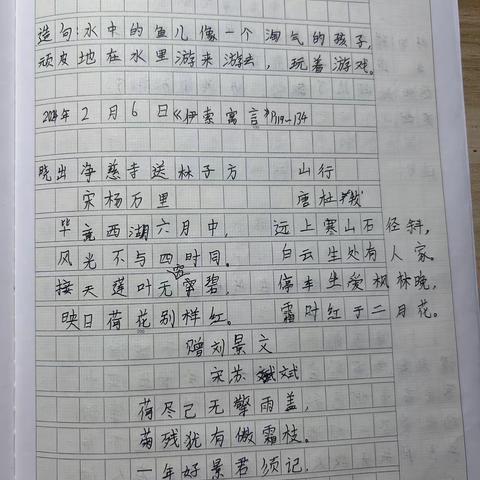 造句:水中的鱼儿像一个淘气的孩子,
顽皮地在水里游来游去,玩着游戏。
2024年2月6日《伊索寓言》P119-134
晓出净慈寺送林子方 山行
宋杨万里 唐杜牧
毕竟西湖六月中, 远上寒山石径斜,
风光不与四时同。 白云生处有人家。
接天莲叶无穷碧, 停车坐爱枫林晚,
映日荷花别样红。 霜叶红于二月花。
赠刘景文
宋苏
荷尽已无擎雨盖,
菊残犹有傲霜枝。
一年好景君须记,